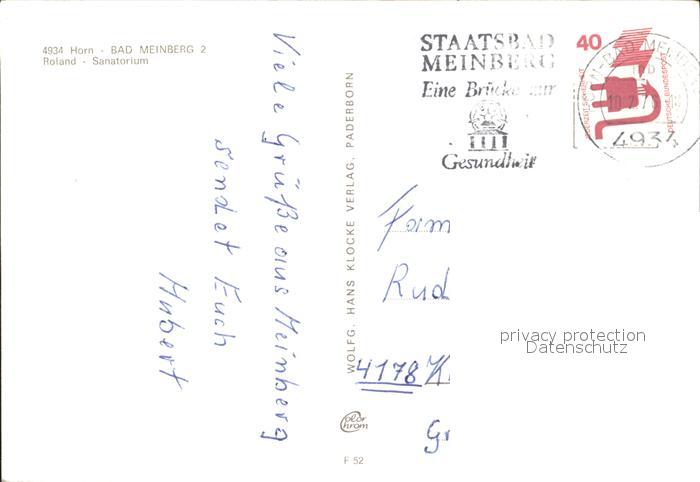 4934 Horn - BAD MEINBERG 2
Roland - Sanatorium
Viele Grüße aus Meinberg
sendet Euch
Hubert
WOLFG. HANS KLOCKE VERLAG, PADERBORN
STAATSBAD
MEINBERG
Eine Brücke zur
Gesundheit
40
DEUTSCHE BUNDESPOST
4934
Fam
Rud
4178 K
Gr
privacy protection
Datenschutz
color
chrom
F 52